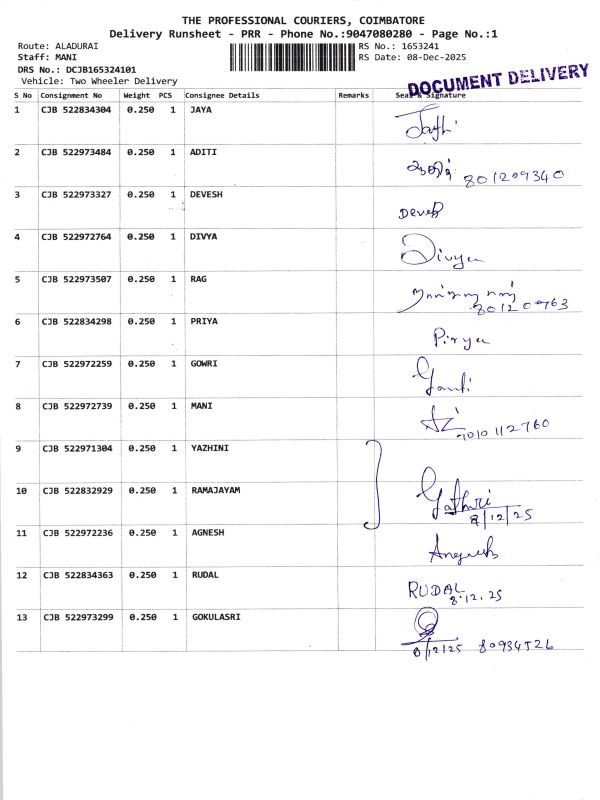 THE PROFESSIONAL COURIERS, COIMBATORE
Delivery Runsheet - PRR - Phone No.:9047080280 - Page No.:1
Route: ALADURAI RS No.: 1653241
Staff: MANI RS Date: 08-Dec-2025
DRS No.: DCJB165324101
Vehicle: Two Wheeler Delivery
DOCUMENT DELIVERY
S No Consignment No Weight PCS Consignee Details Remarks Seal & Signature
1 CJB 522834304 0.250 1 JAYA
2 CJB 522973484 0.250 1 ADITI
3 CJB 522973327 0.250 1 DEVESH
4 CJB 522972764 0.250 1 DIVYA Divya
5 CJB 522973507 0.250 1 RAG
6 CJB 522834298 0.250 1 PRIYA Pirya
7 CJB 522972259 0.250 1 GOWRI
8 CJB 522972739 0.250 1 MANI
7010112760
9 CJB 522971304 0.250 1 YAZHINI
10 CJB 522832929 0.250 1 RAMAJAYAM
8/12/25
11 CJB 522972236 0.250 1 AGNESH
12 CJB 522834363 0.250 1 RUDAL RUDAL
8.12.25
13 CJB 522973299 0.250 1 GOKULASRI